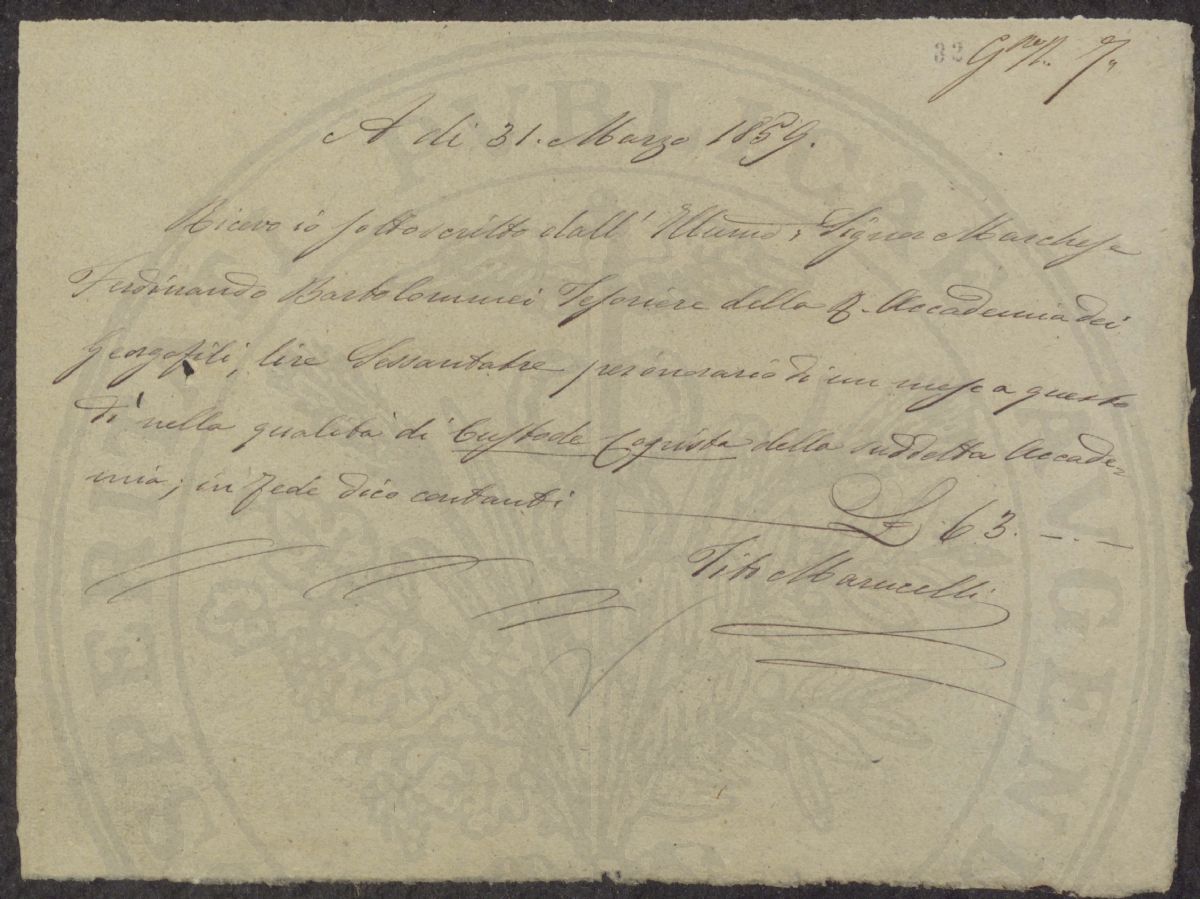 32 G.^le N. 7.
A di 31. Marzo 1859.
Ricevo io sottoscritto dall' Illumo. Signor Marchese
Ferdinando Bartolommei Tesoriere della R. Accademia dei
Georgofili, lire Sessantatre per onorario di un mese a questo
dì nella qualità di Custode Copista della suddetta Accade-
mia; in fede dico contanti £ 63. – . –
Tito Marucelli
PROSPERITATI PUBLICAE AUGENDAE